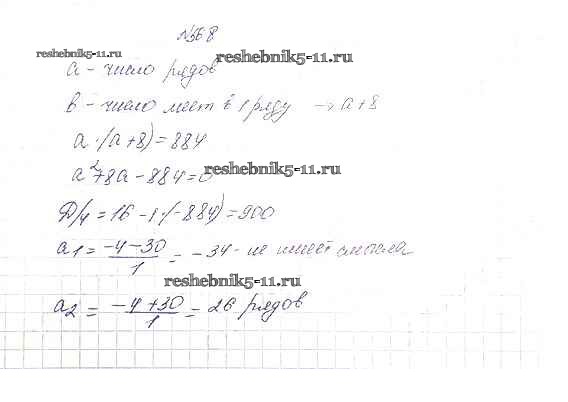 №568
reshebnik5-11.ru
reshebnik5-11.ru
a - число рядов
в - число мест в 1 ряду → a+8
a·(a+8)=884
a²+8a-884=0
reshebnik5-11.ru
Д/4=16-1·(-884)=900
a1=(-4-30)/1=-34- не имеет смысла
reshebnik5-11.ru
a2=(-4+30)/1=26 рядов